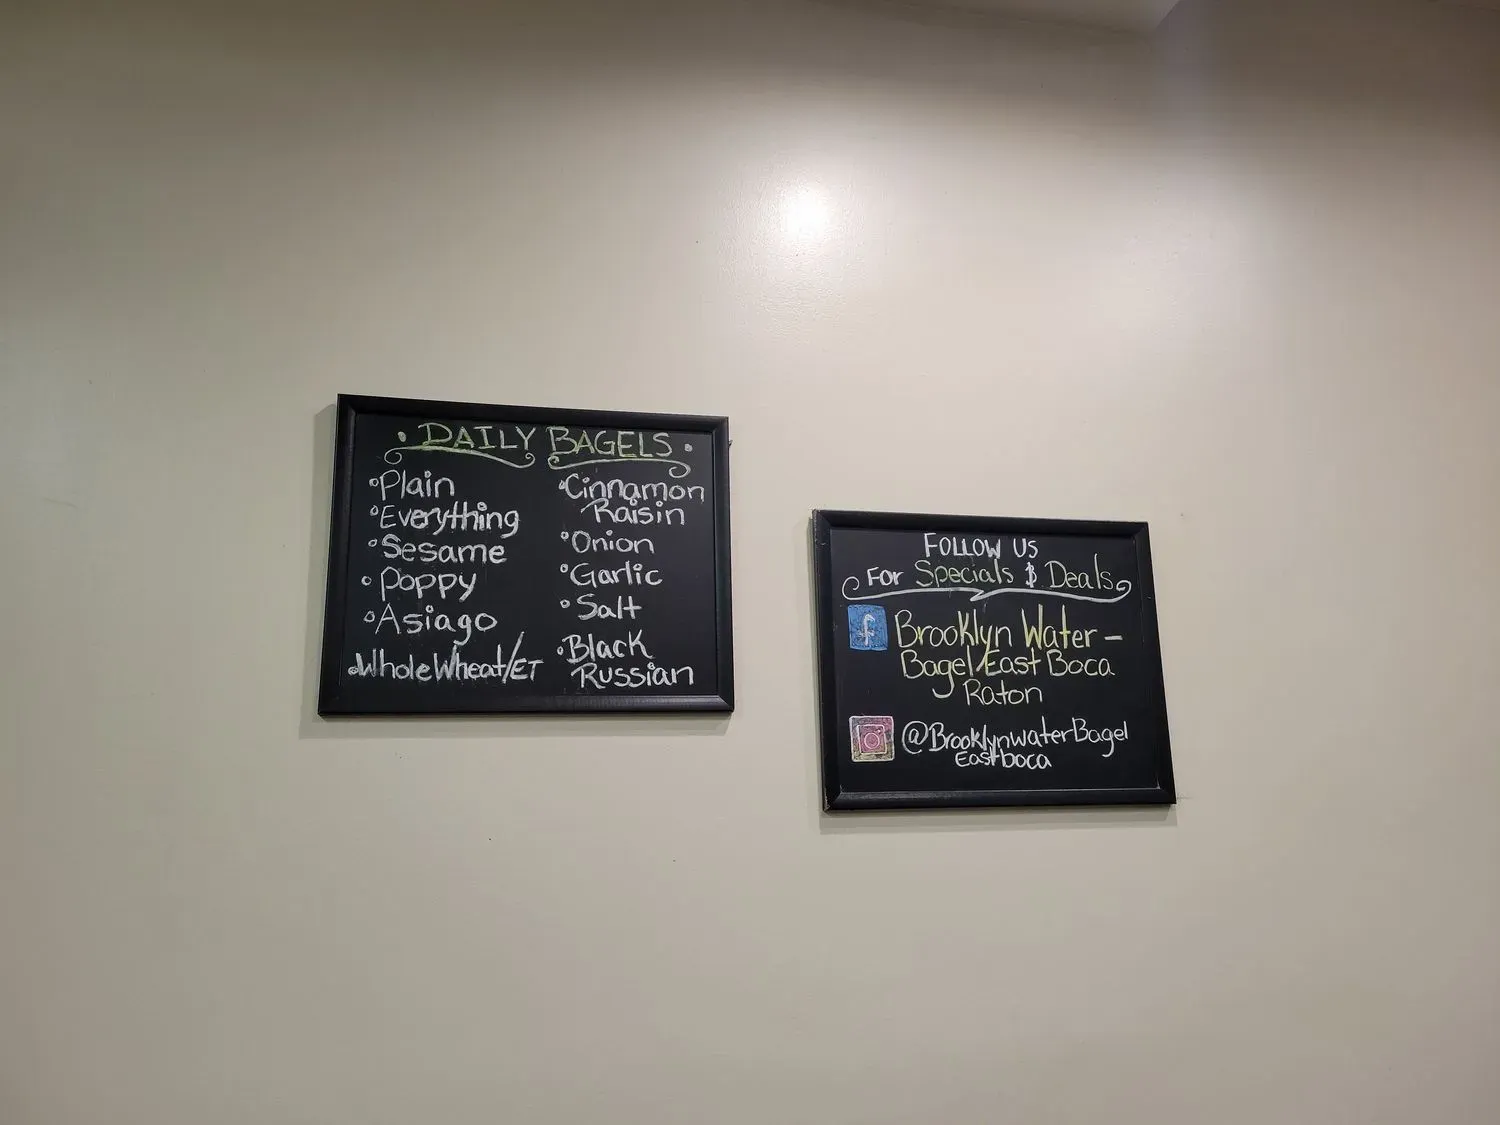 DAILY BAGELS
Plain
Everything
Sesame
Poppy
Asiago
Whole Wheat/ET
Cinnamon
Raisin
Onion
Garlic
Salt
Black
Russian
FOLLOW US
For Specials & Deals
f Brooklyn Water -
Bagel East Boca
Raton
@BrooklynwaterBagel
Eastboca